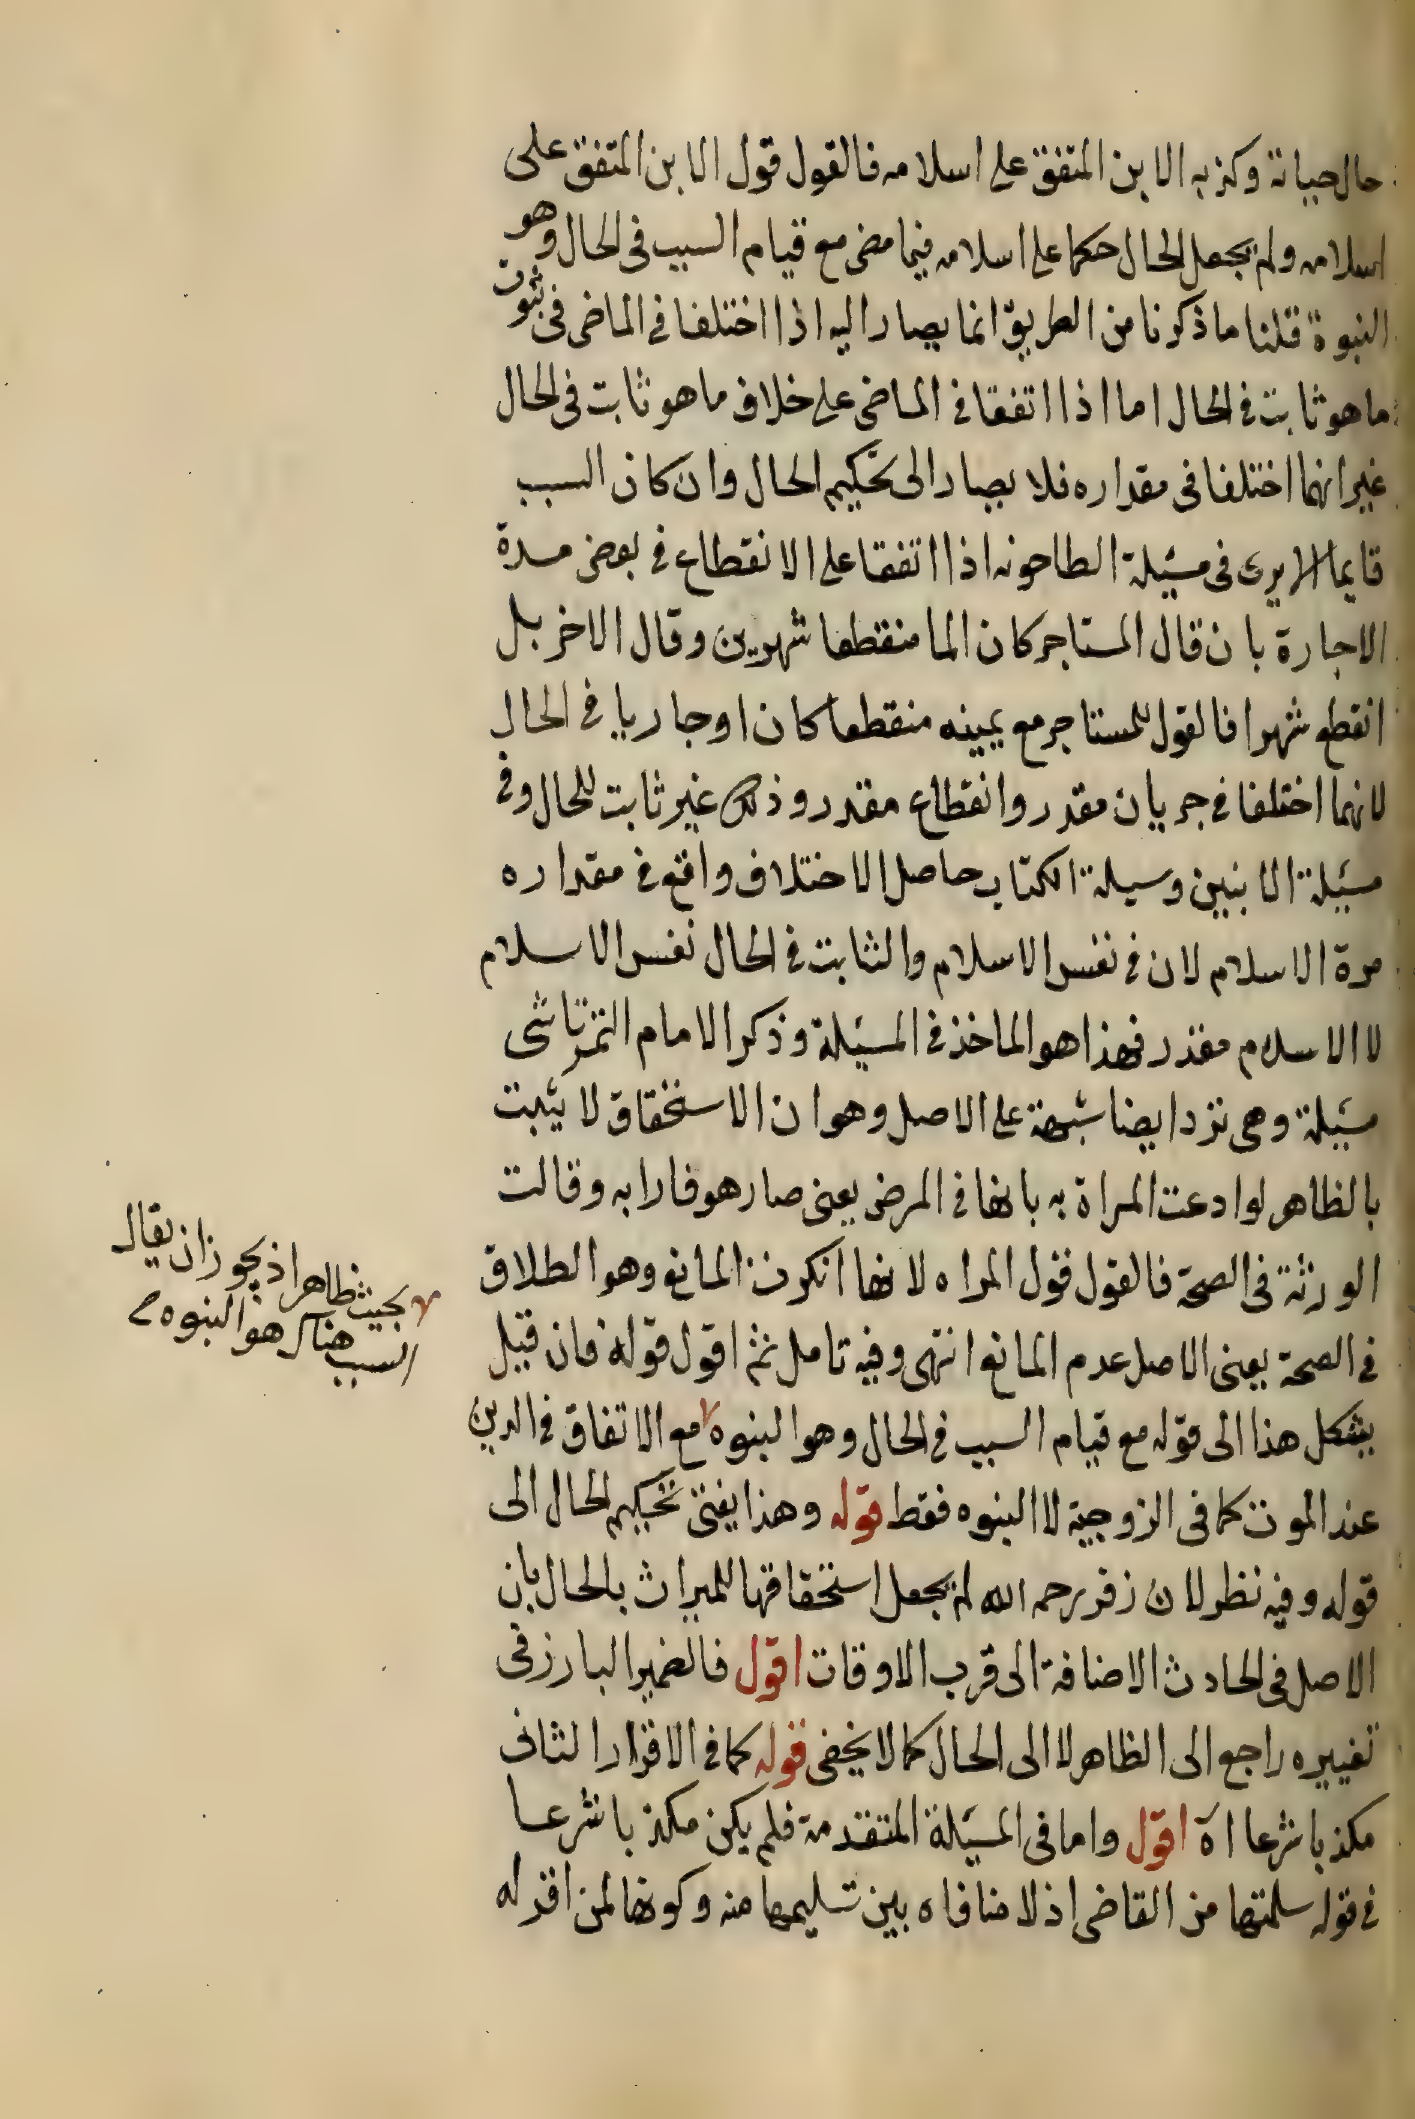 حال حياته وكذبه الابن المتفق على اسلامه فالقول قول الابن المتفق على
اسلامه ولم يجعل الحال حكما على اسلامه فيما مضى مع قيام السبب فى الحال وهو
البنوة قلنا ما ذكرنا من الطريق انما يصار اليه اذا اختلفا في الماضى فى ثبوت
ما هو ثابت في الحال اما اذا اتفقا في الماضى على خلاف ما هو ثابت فى الحال
غير انهما اختلفا فى مقداره فلا يصار الى تحكيم الحال وان كان السبب
قايما الا يرى فى مسئلة الطاحونه اذا اتفقا على الانقطاع في بعض مدة
الاجارة بان قال المستاجر كان الما منقطعا شهرين وقال الاخر بل
انقطع شهرا فالقول للمستاجر مع يمينه منقطعا كان او جاريا في الحال
لانهما اختلفا في جريان مقدر وانقطاع مقدر وذلك غير ثابت للحال وفى
مسئلة الابنين وسيلة الكتاب حاصل الاختلاف واقع في مقداره
مدة الاسلام لان في نفس الاسلام والثابت في الحال نفس الاسلام
لا الاسلام مقدر فهذا هو الماخذ في المسئلة وذكر الامام التمرتاشى
مسئلة وهى ترد ايضا شبهة على الاصل وهو ان الاستحقاق لا يثبت
بالظاهر لو ادعت المراة به بانها في المرض يعنى صار هو فارا به وقالت
الورثة فى الصحة فالقول قول المراه لانها انكرت المانع وهو الطلاق
في الصحة يعنى الاصل عدم المانع انتهى وفيه تامل ثم اقول قوله فان قيل
يشكل هذا الى قوله مع قيام السبب في الحال وهو البنوه مع الاتفاق في الدين
عند الموت كما فى الزوجية لا البنوه فقط قوله وهذا يفتى تحكيم الحال الى
قوله وفيه نظر لان زفر رحمه الله لم يجعل استحقاقها للميراث بالحال بان
الاصل فى الحادث الاضافة الى قرب الاوقات اقول فالضمير البارز فى
تغييره راجع الى الظاهر لا الى الحال كما لا يخفى قوله كما فى الاقرار الثانى
مكذبا شرعا اه اقول واما فى المسئلة المتقدمة فلم يكن مكذبا شرعا
في قوله سلمتها من القاضى اذ لا منافاه بين تسليمها منه وكونها لمن اقر له
بحيث ظاهر اذ يجوز ان يقال
السبب هناك هو البنوه